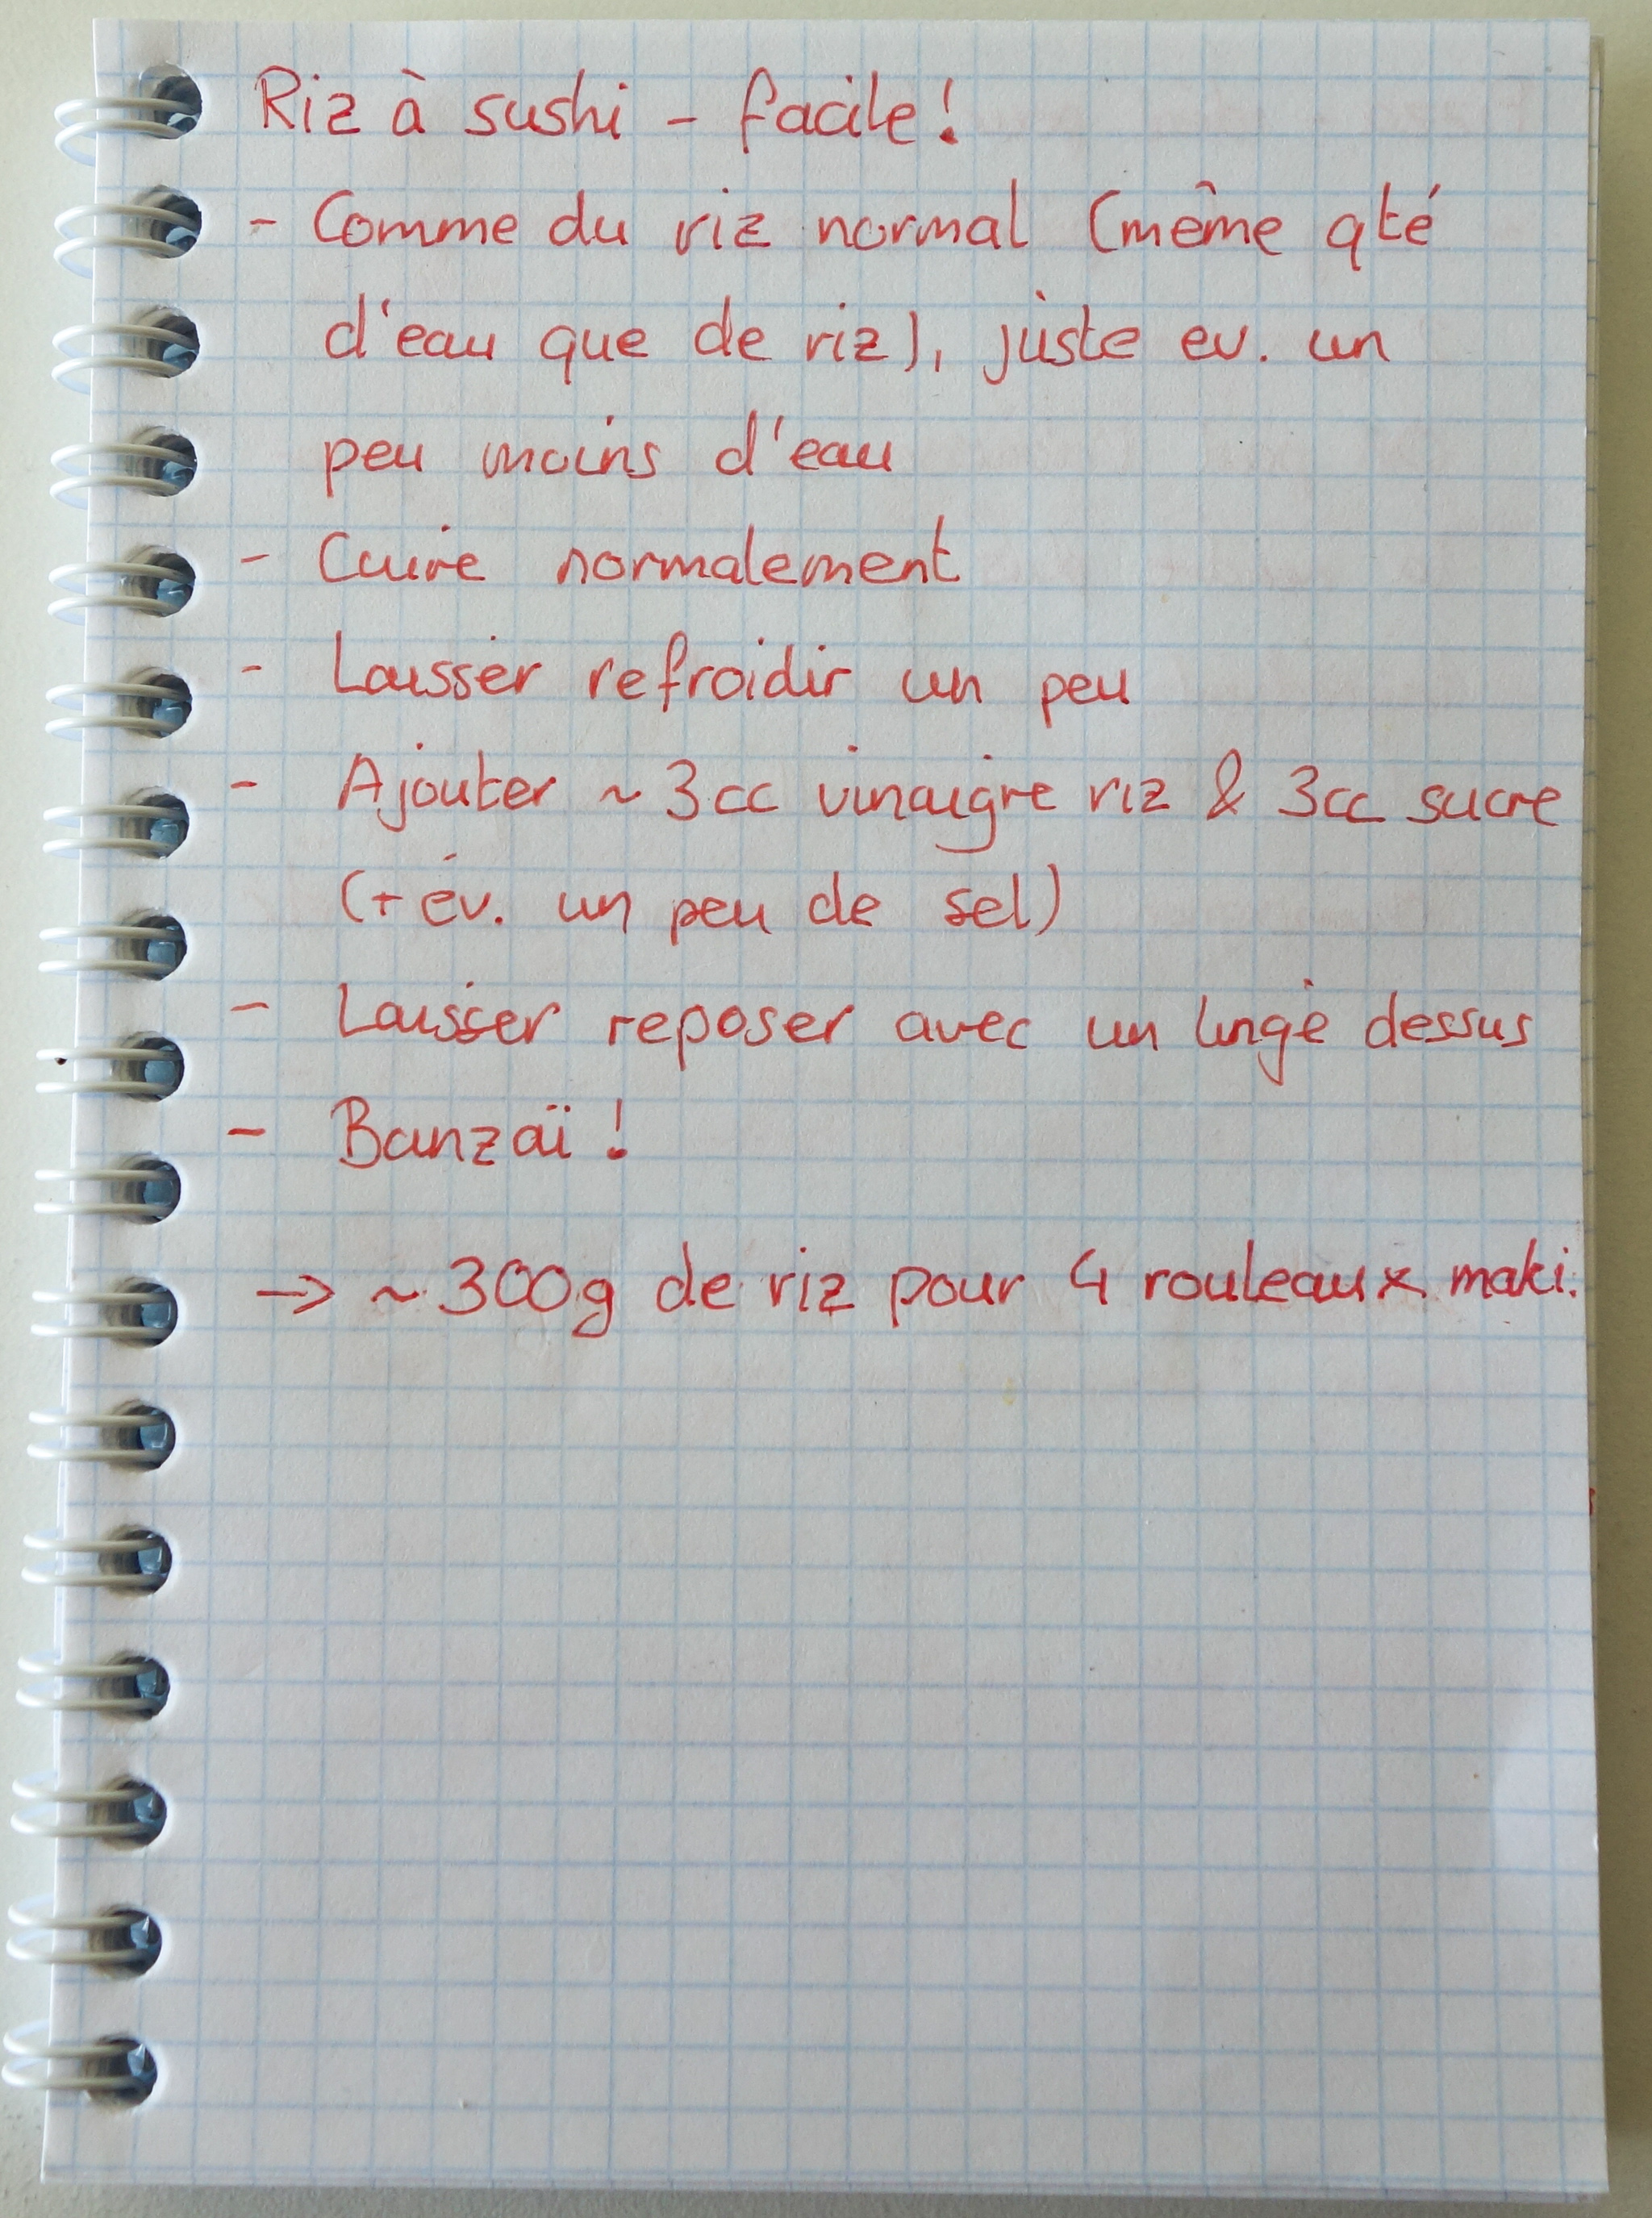 Riz à sushi - facile !
- Comme du riz normal (même qté
d'eau que de riz), juste ev. un
peu moins d'eau
- Cuire normalement
- Laisser refroidir un peu
- Ajouter ~ 3cc vinaigre riz & 3cc sucre
(+ év. un peu de sel)
- Laisser reposer avec un linge dessus
- Banzaï !
→ ~ 300g de riz pour 4 rouleaux maki.